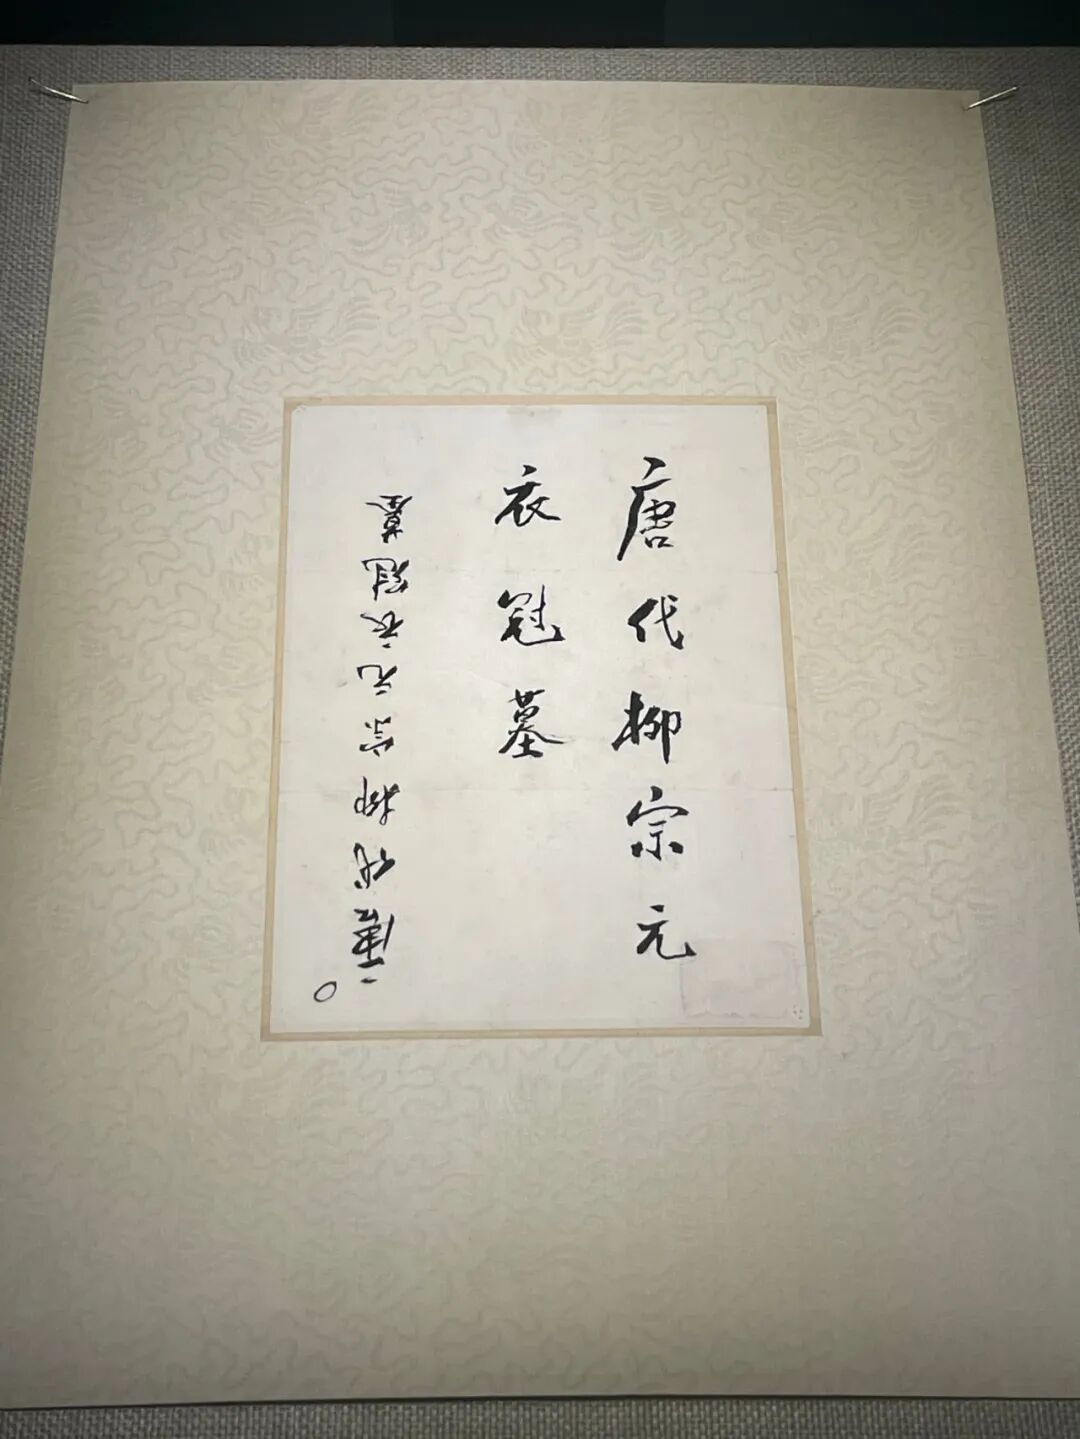 唐代柳宗元
衣冠墓
唐代柳宗元衣冠墓